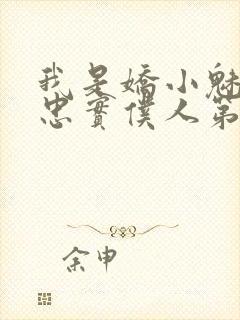 我是嬌小魅
忠實僕人第
余申